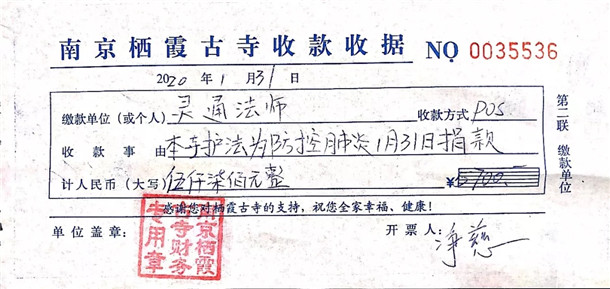 南京栖霞古寺收款收据 NO 0035536
2020 年 1 月 31 日
缴款单位(或个人) 灵通法师 收款方式 POS
收款事由 本寺护法为防控肺炎1月31日捐款
计人民币(大写) 伍仟柒佰元整 ¥ 5700.
感谢您对栖霞古寺的支持,祝您全家幸福、健康!
单位盖章: 开票人: 净慈
南京栖霞
古寺财务
专用章
第二联 缴款单位